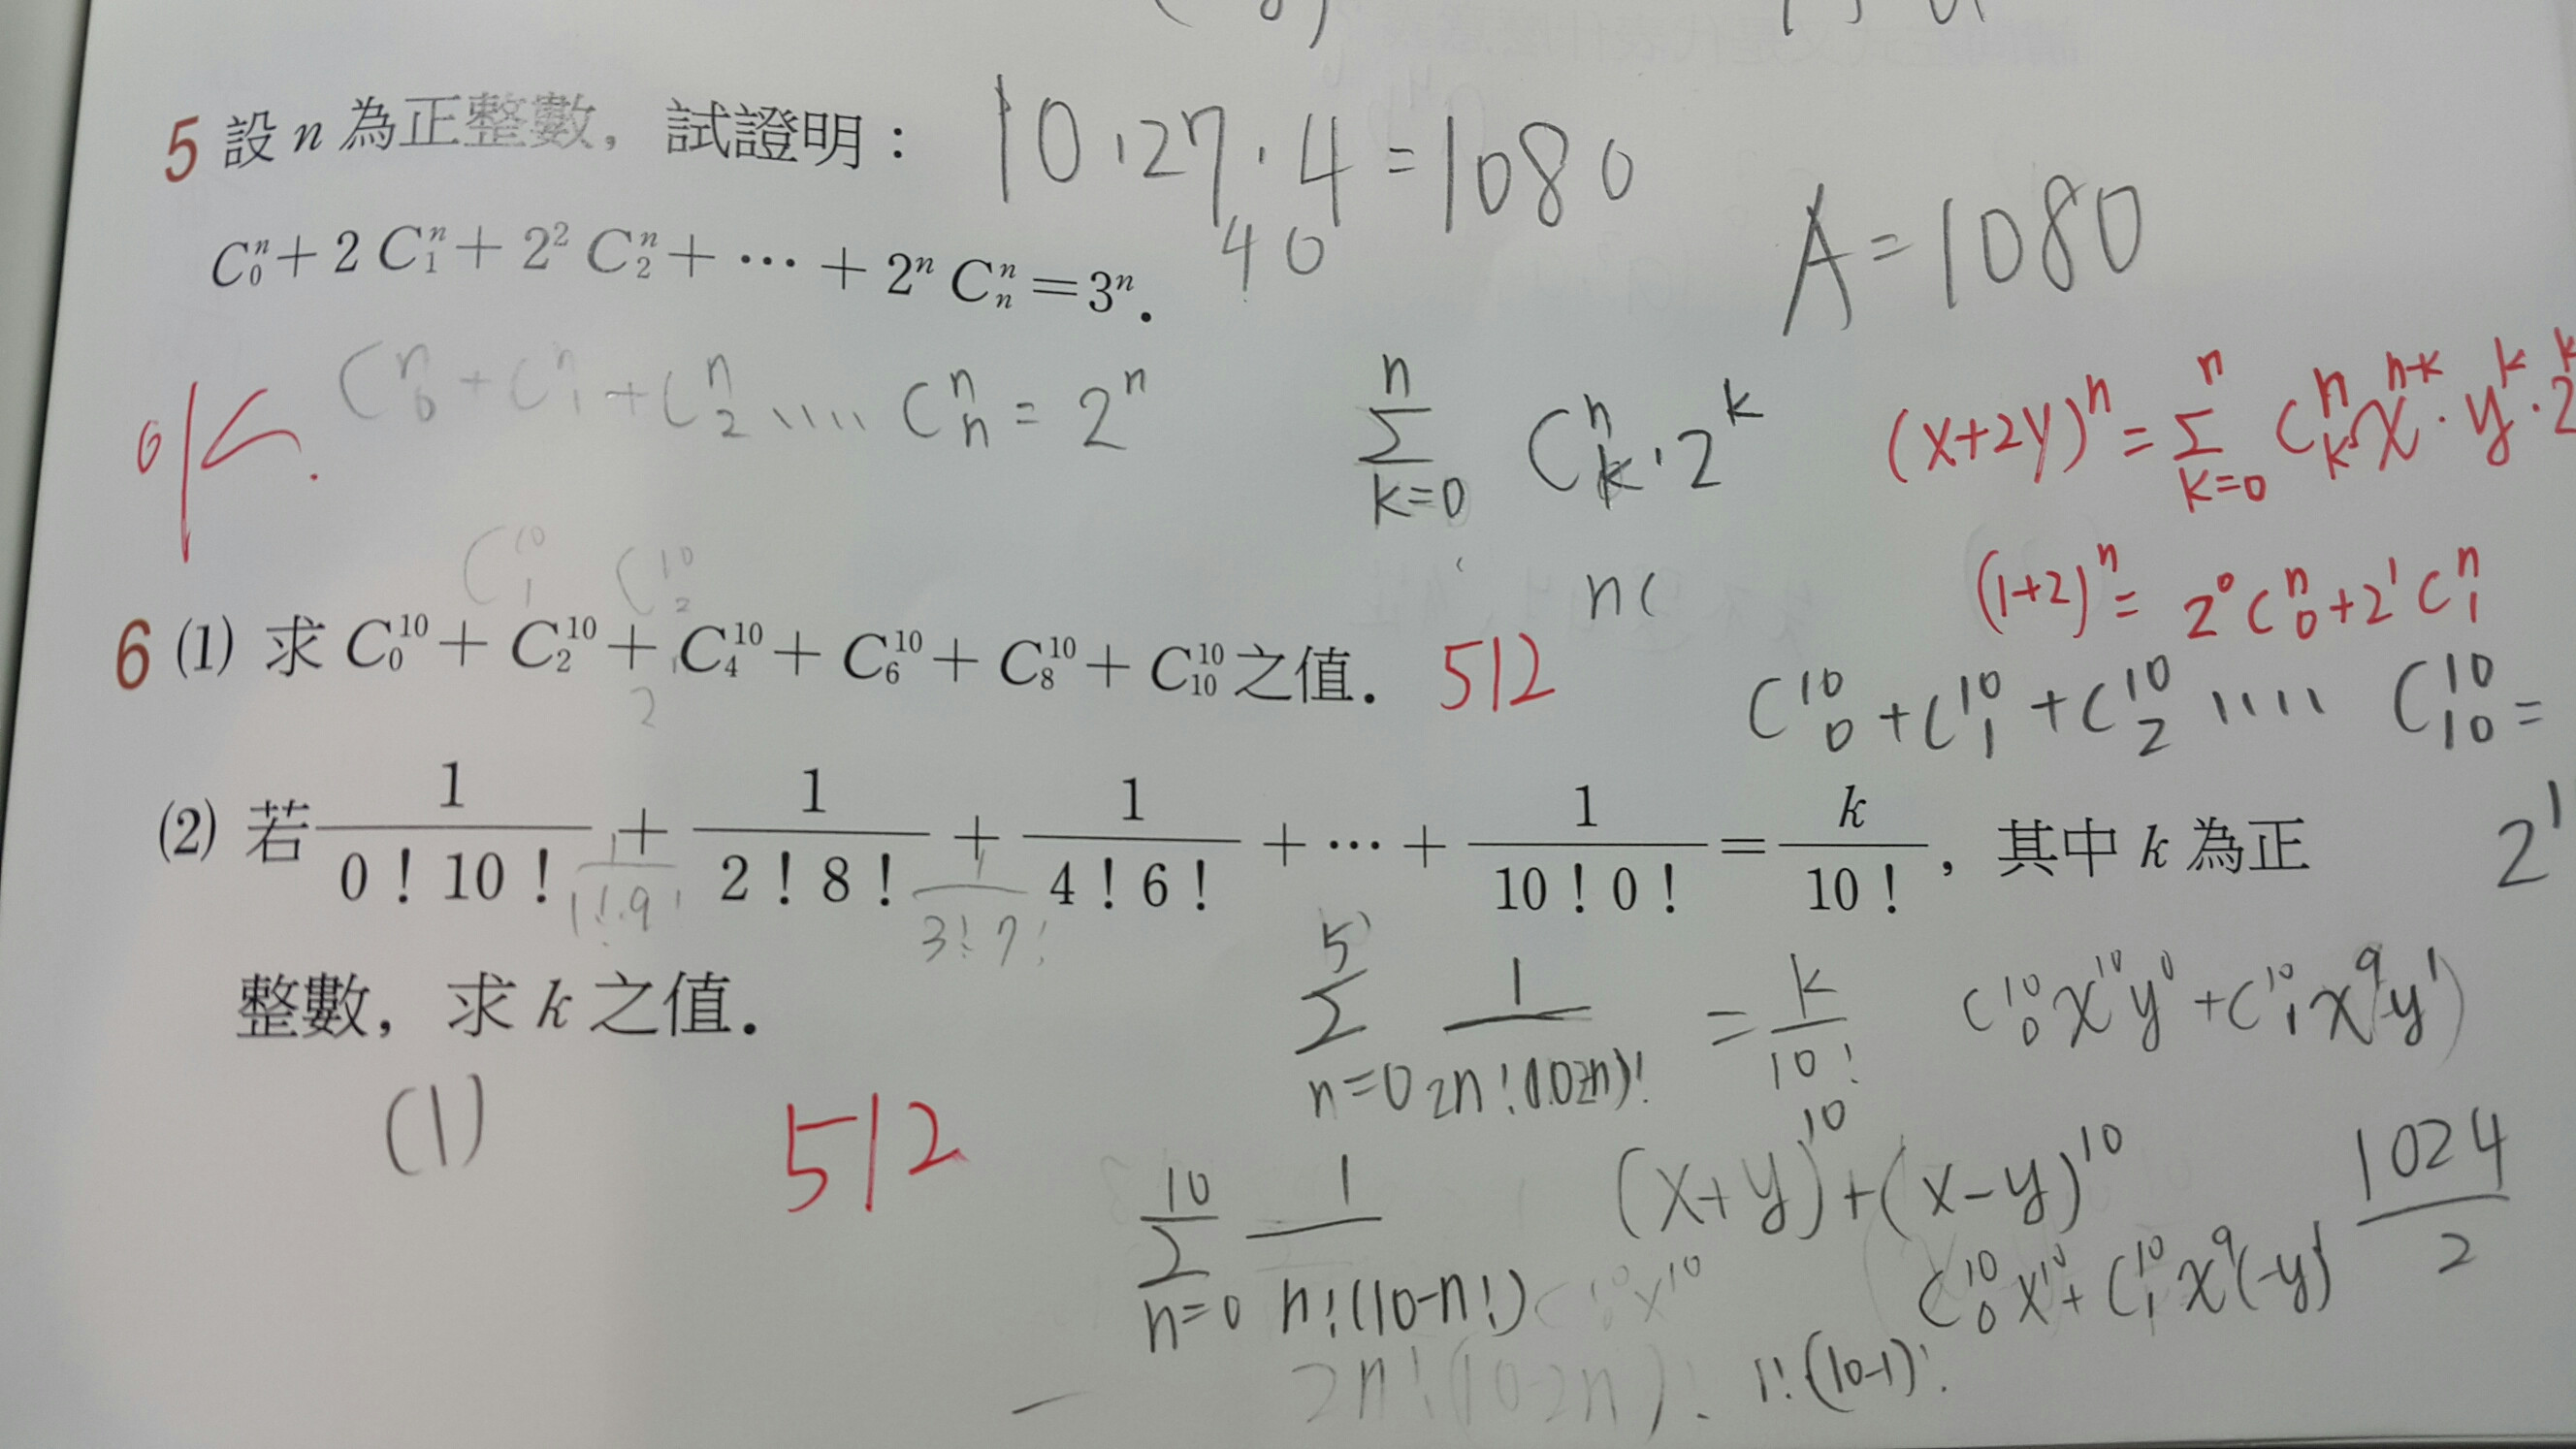 5 設 n 為正整數，試證明：
10·27·4=1080
40
A=1080
C₀ⁿ+2C₁ⁿ+2²C₂ⁿ+⋯+2ⁿCₙⁿ=3ⁿ.
C₀ⁿ+C₁ⁿ+C₂ⁿ....Cₙⁿ=2ⁿ
∑_{k=0}^{n} C_k^n·2^k
(x+2y)^n=∑_{k=0}^{n} C_k^n x^{n-k}·y^k·2^k
(1+2)^n=2⁰C₀ⁿ+2¹C₁ⁿ
n(
C₁¹⁰ C₂¹⁰
6 (1) 求 C₀¹⁰+C₂¹⁰+C₄¹⁰+C₆¹⁰+C₈¹⁰+C₁₀¹⁰ 之值． 512
2
C₀¹⁰+C₁¹⁰+C₂¹⁰....C₁₀¹⁰=
2¹
(2) 若 1/(0!10!)+1/(2!8!)+1/(4!6!)+⋯+1/(10!0!)=k/10!，其中 k 為正
1/(1!·9!) 1/(3!·7!)
整數，求 k 之值．
∑_{n=0}^{5} 1/(2n!(10-2n)!)=k/10!
C₀¹⁰x¹⁰y⁰+C₁¹⁰x⁹y¹)
(1)
512
∑_{n=0}^{10} 1/(n!(10-n!)
(x+y)¹⁰+(x-y)¹⁰
1024/2
C₀¹⁰x¹⁰+C₁¹⁰x⁹(-y)¹
2n!(10-2n)!
1!(10-1)!